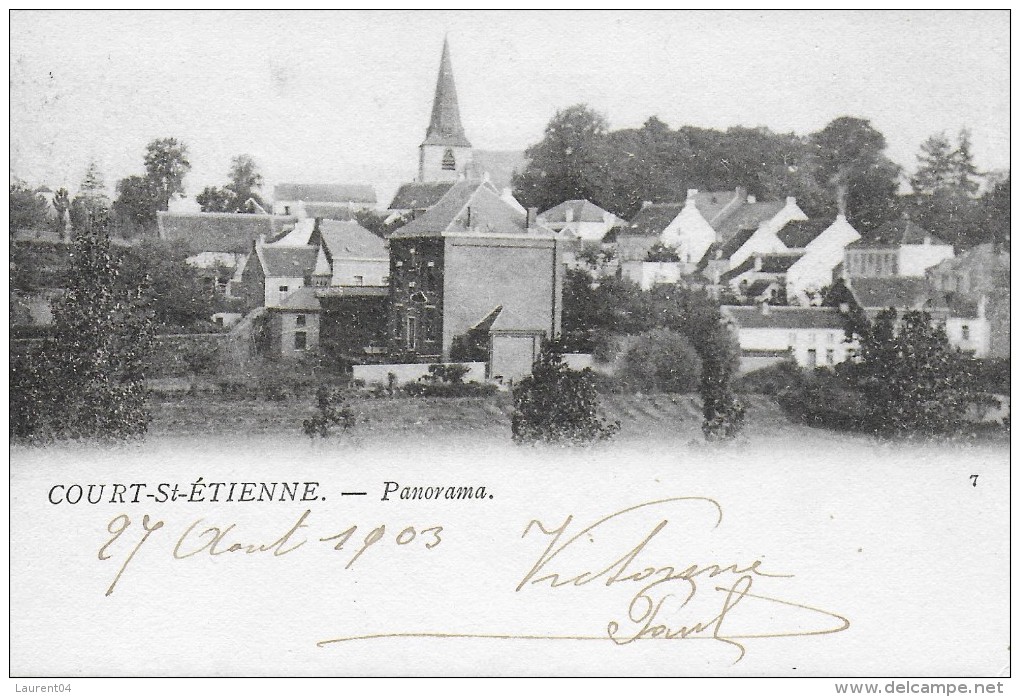 COURT-St-ÉTIENNE. — Panorama.
7
27 Aout 1903
Victorine
Paul
Laurent04
www.delcampe.net